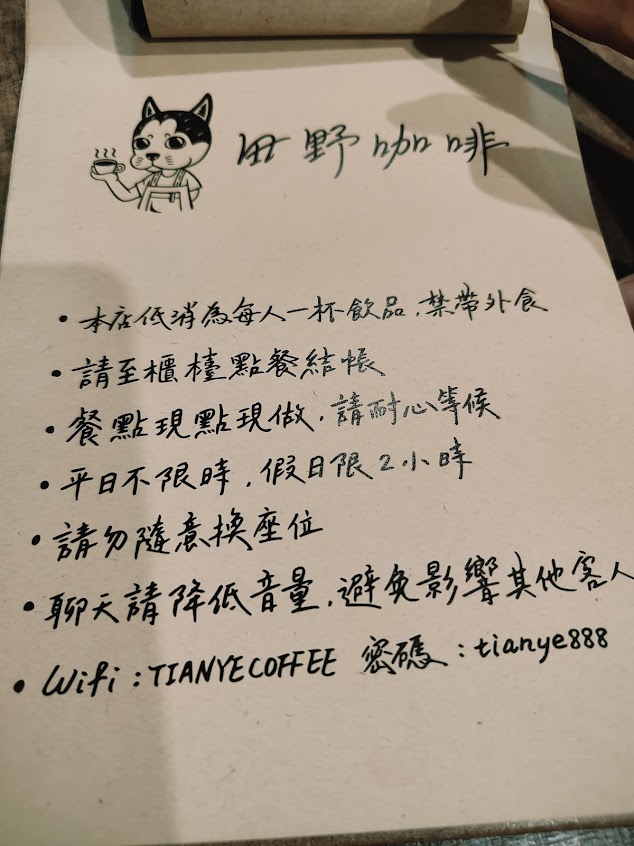 田野咖啡
• 本店低消為每人一杯飲品，禁帶外食
• 請至櫃檯點餐結帳
• 餐點現點現做，請耐心等候
• 平日不限時，假日限2小時
• 請勿隨意換座位
• 聊天請降低音量，避免影響其他客人
• Wifi：TIANYECOFFEE 密碼：tianye888